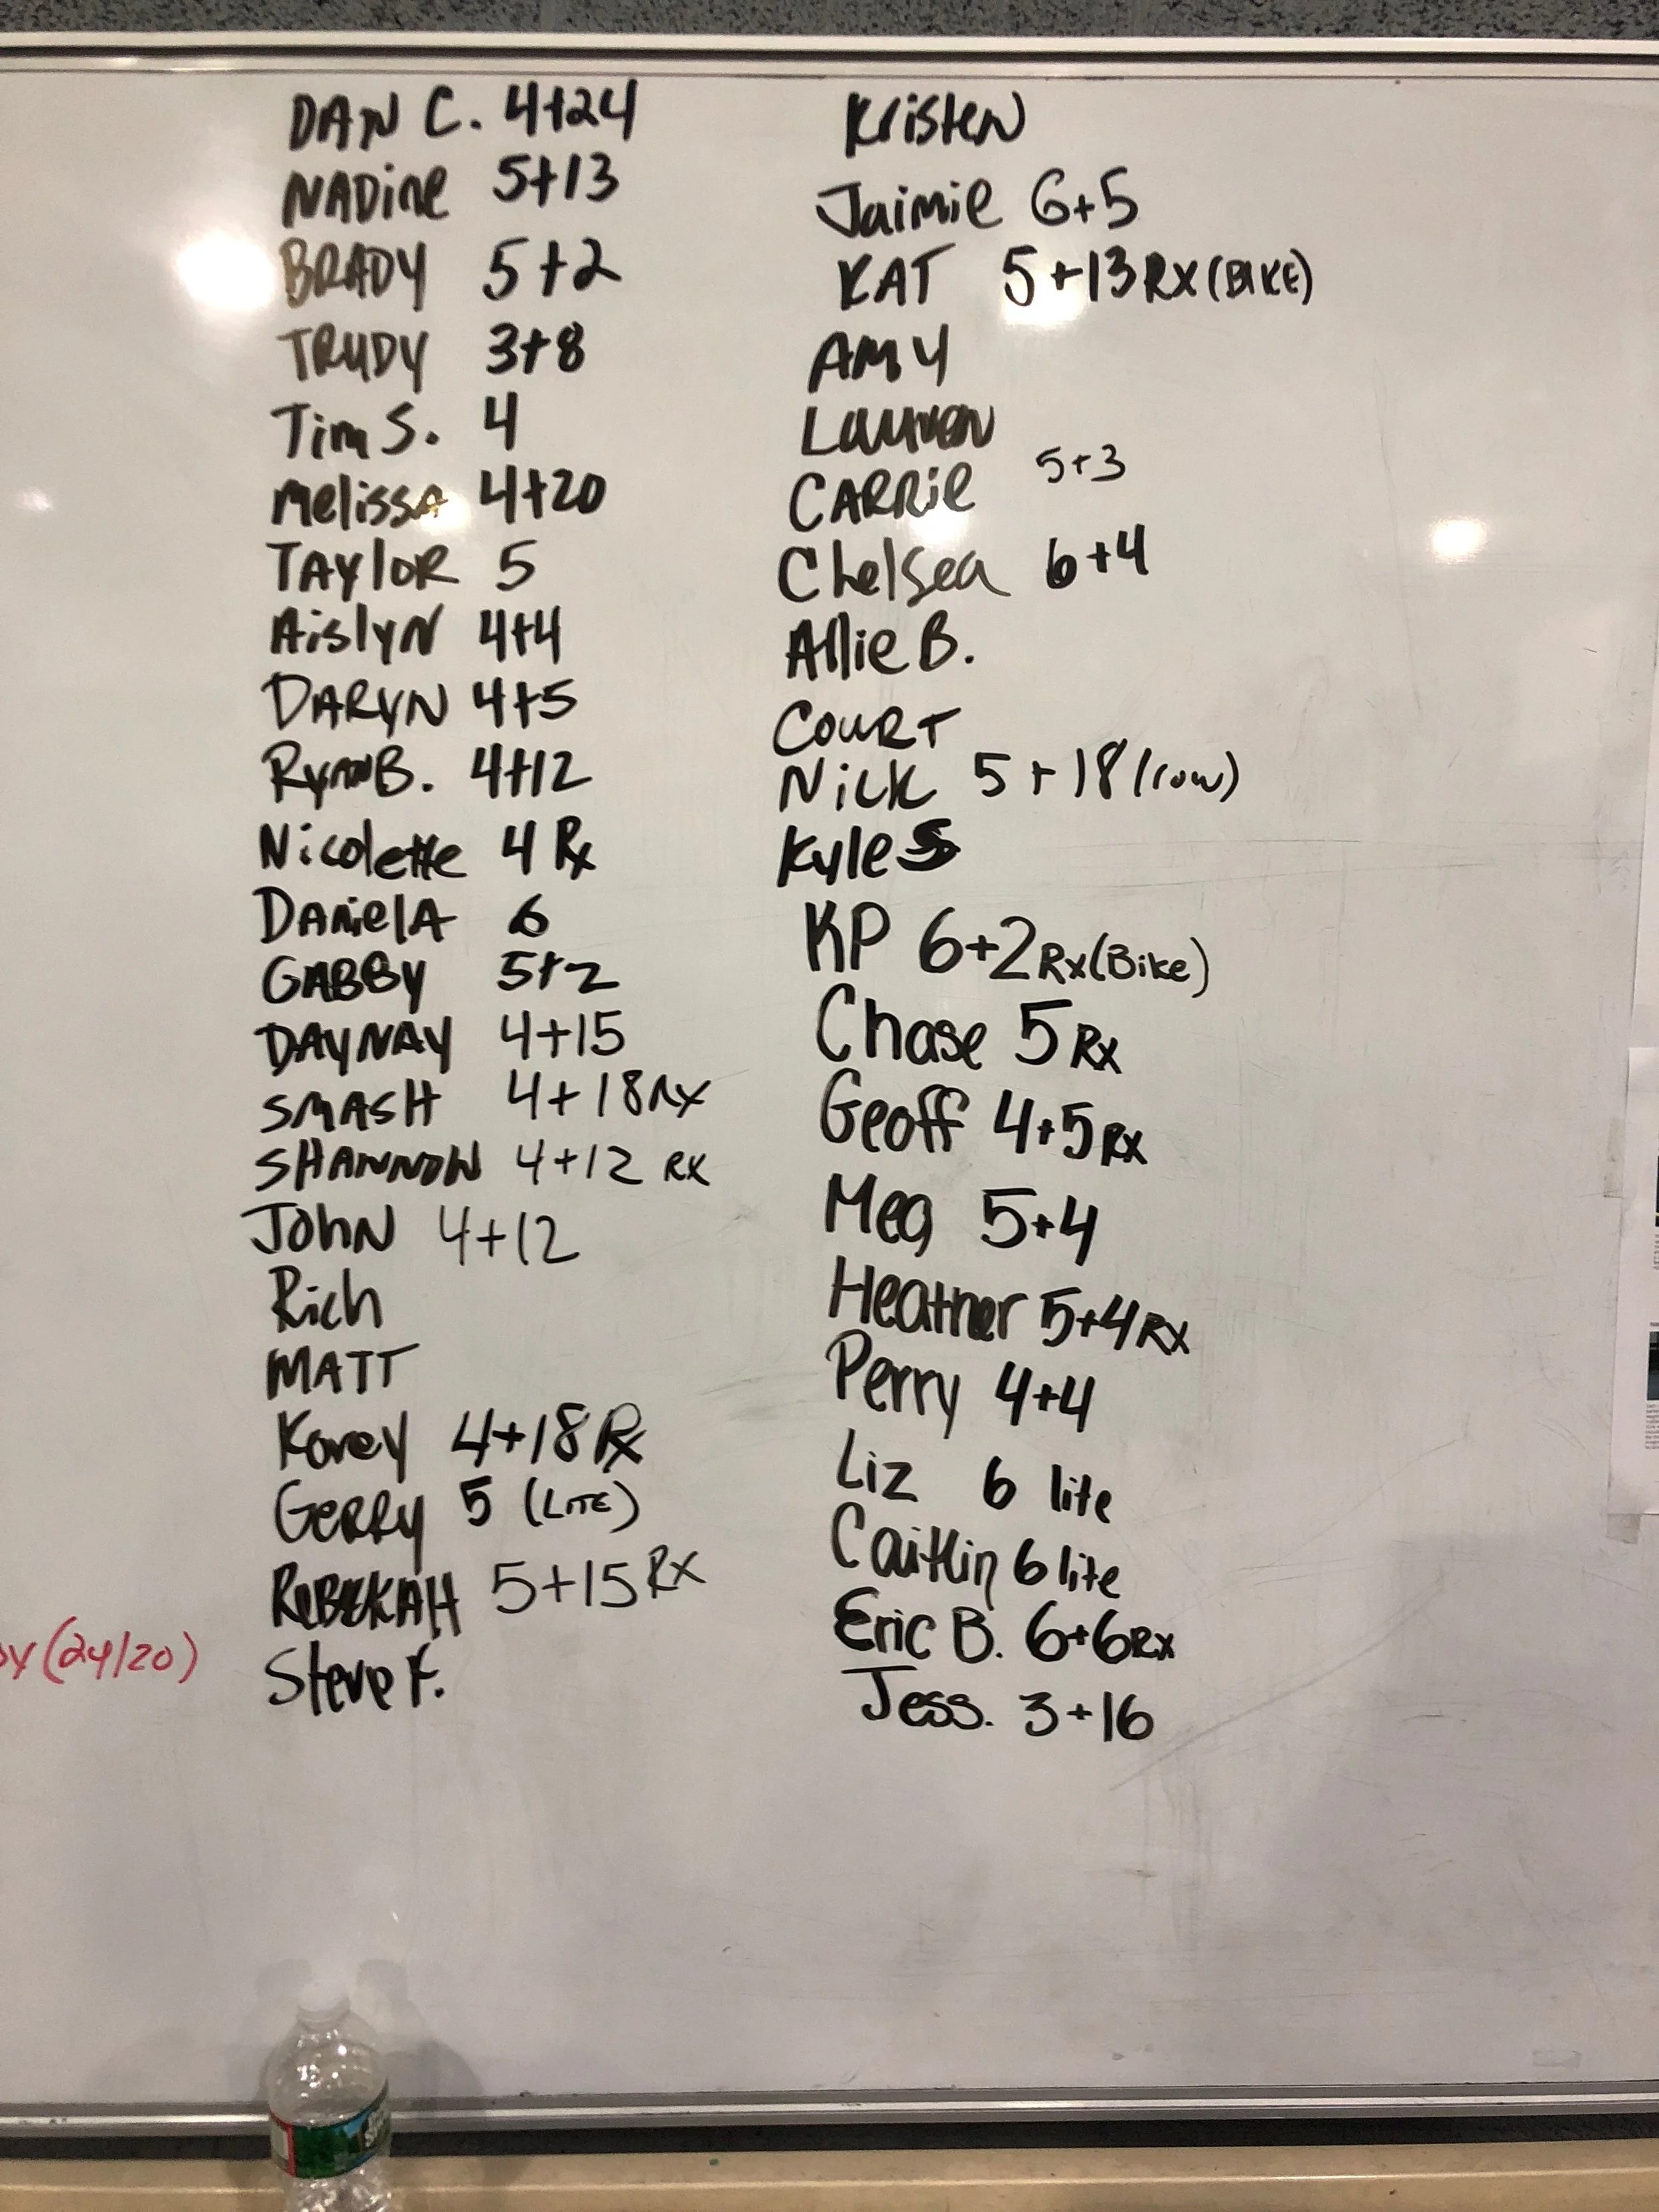 DAN C. 4+24
NADiNe 5+13
BRADY 5+2
TRUDY 3+8
Tim S. 4
MelissA 4+20
TAYloR 5
AislyN 4+4
DARYN 4+5
RyanB. 4+12
Nicolette 4 Rx
DanielA 6
GABBY 5+2
DAYNAY 4+15
SMASH 4+18 RX
SHANNON 4+12 RX
JOhN 4+12
Rich
MATT
Korey 4+18 Rx
GeRRy 5 (LITE)
REBEKAH 5+15 RX
Steve F.
(24/20)
KristeN
Jaimie 6+5
KAT 5+13 RX (BIKE)
AMY
LaureN
CARRie 5+3
Chelsea 6+4
Allie B.
COURT
Nick 5+18 (row)
Kyle
KP 6+2 Rx (Bike)
Chase 5 Rx
Geoff 4+5 RX
Meg 5+4
Heather 5+4 RX
Perry 4+4
Liz 6 lite
Caitlin 6 lite
Eric B. 6+6 Rx
Jess. 3+16